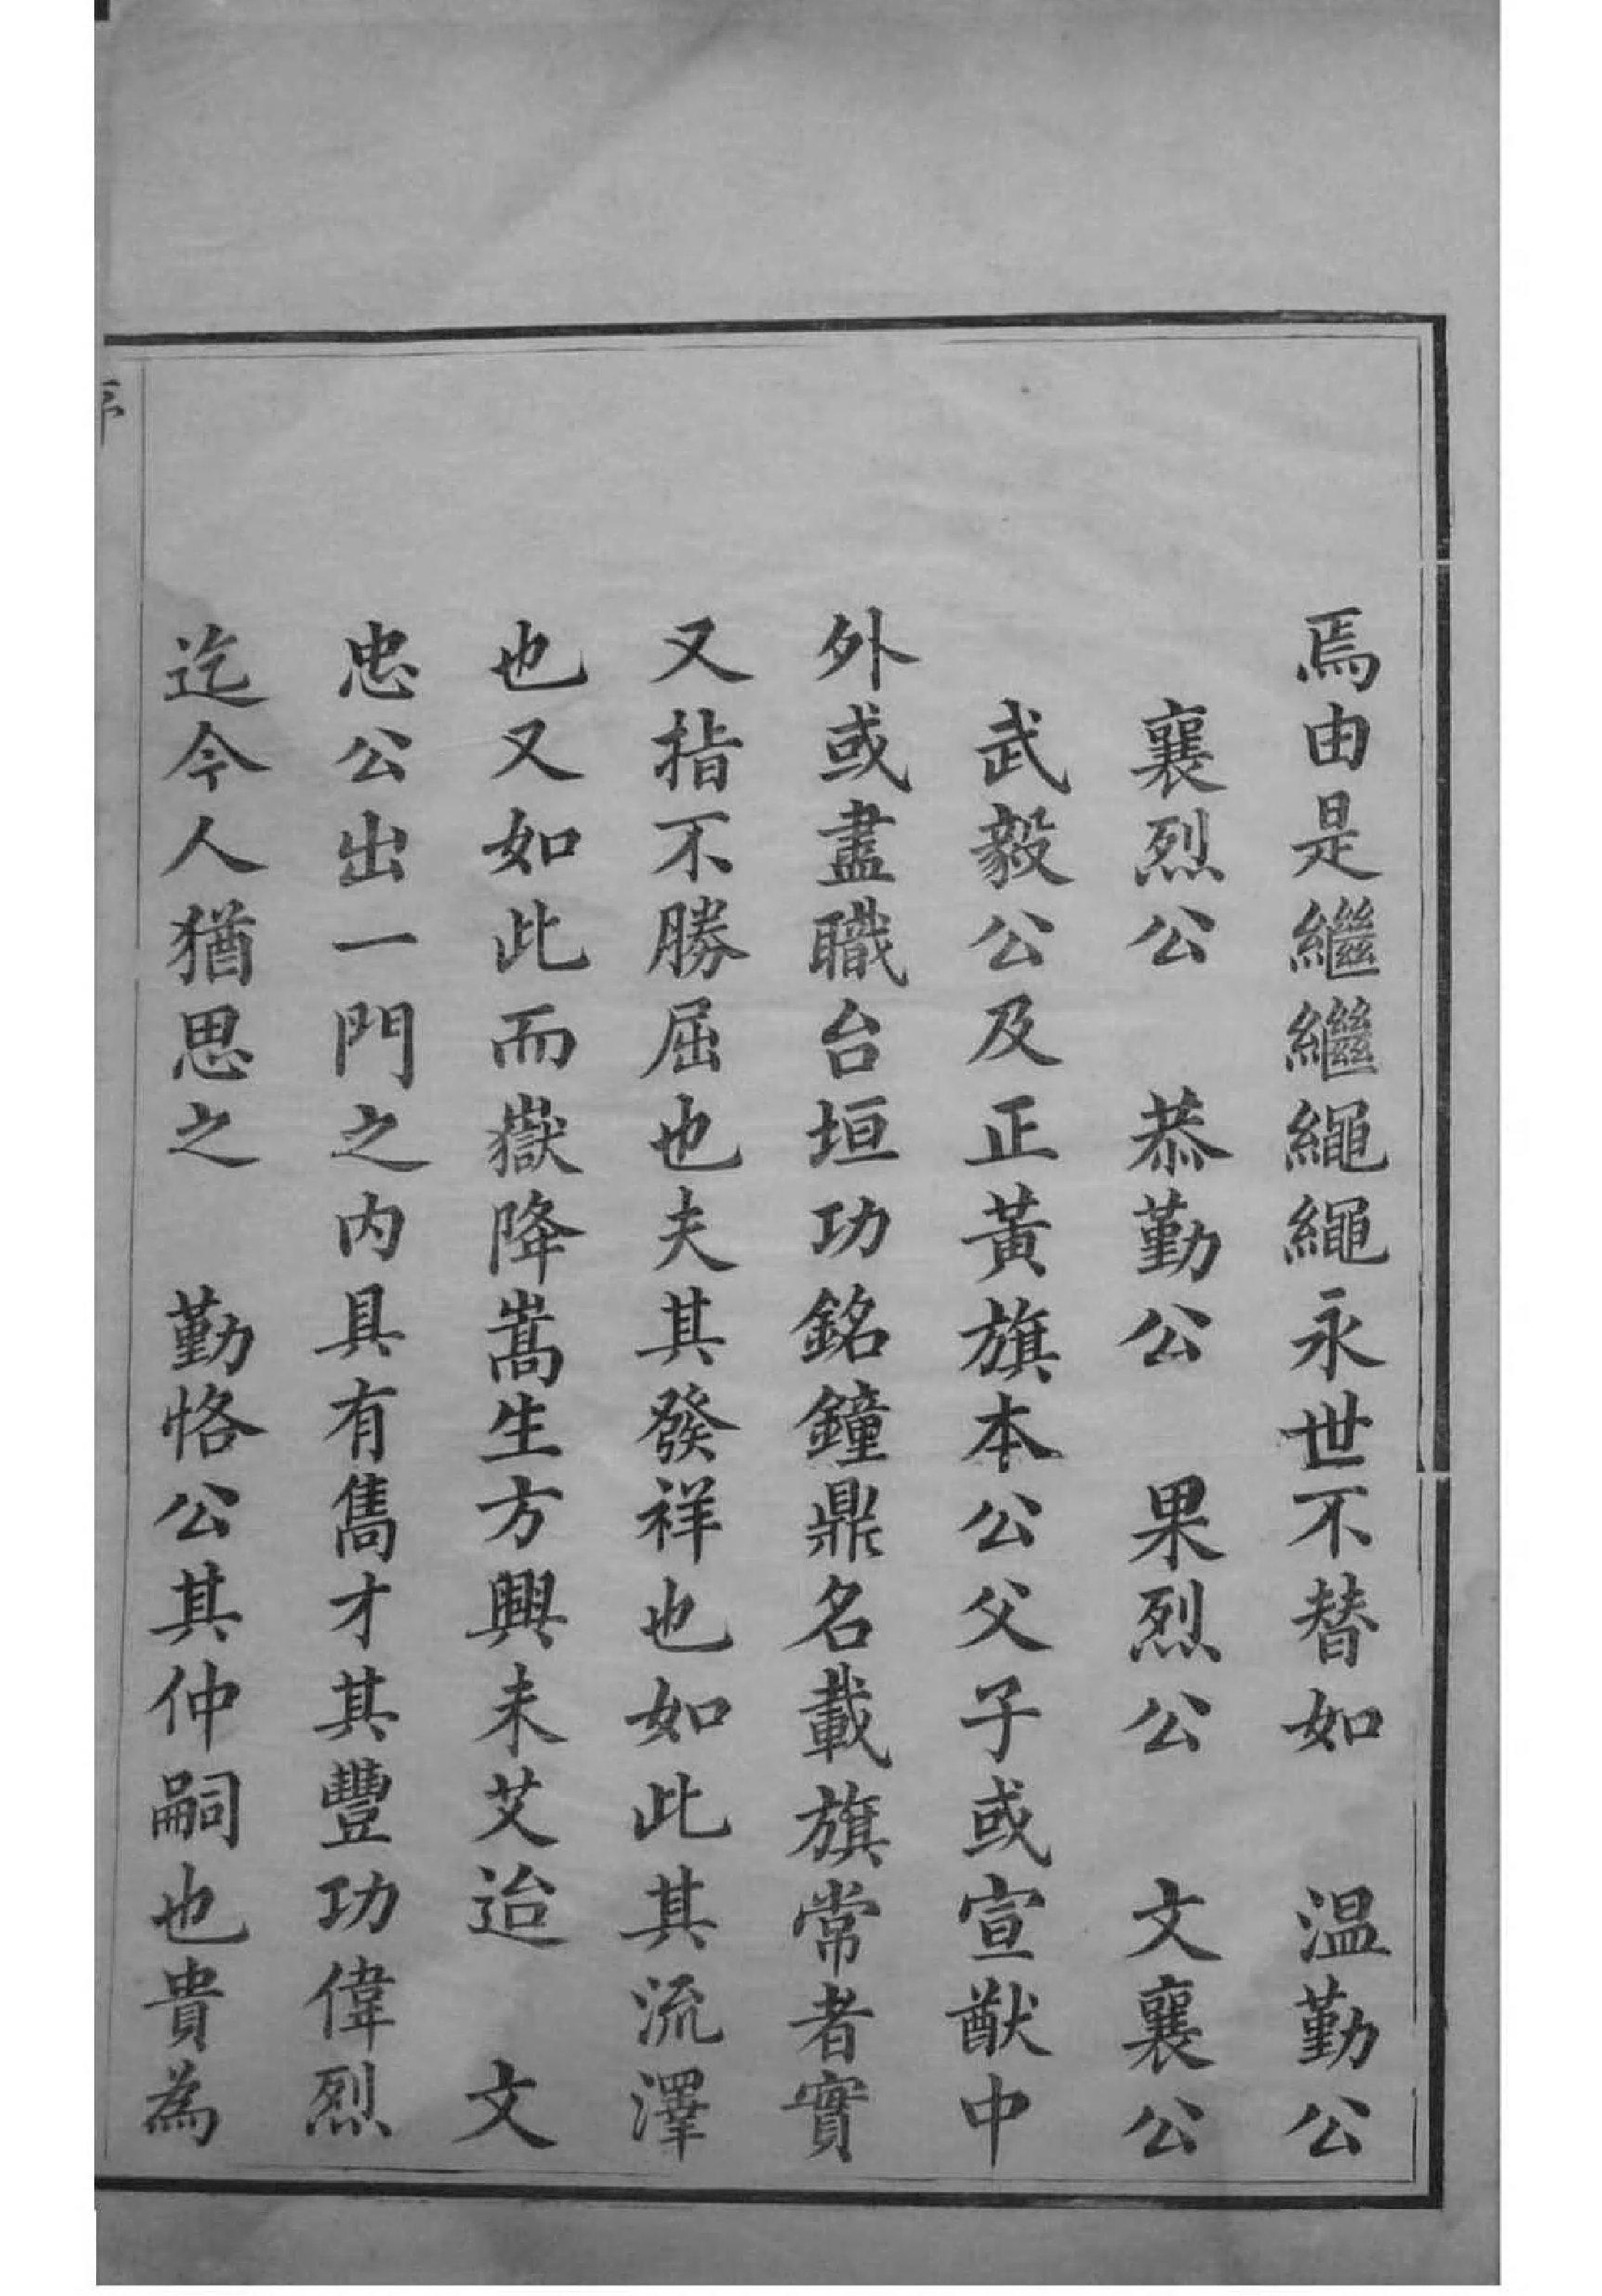 焉由是繼繼繩繩永世不替如　温勤公
襄烈公　恭勤公　果烈公　文襄公
武毅公及正黃旗本公父子或宣猷中
外或盡職台垣功銘鐘鼎名載旗常者實
又指不勝屈也夫其發祥也如此其流澤
也又如此而嶽降嵩生方興未艾迨　文
忠公出一門之内具有雋才其豐功偉烈
迄今人猶思之　勤恪公其仲嗣也貴為
序